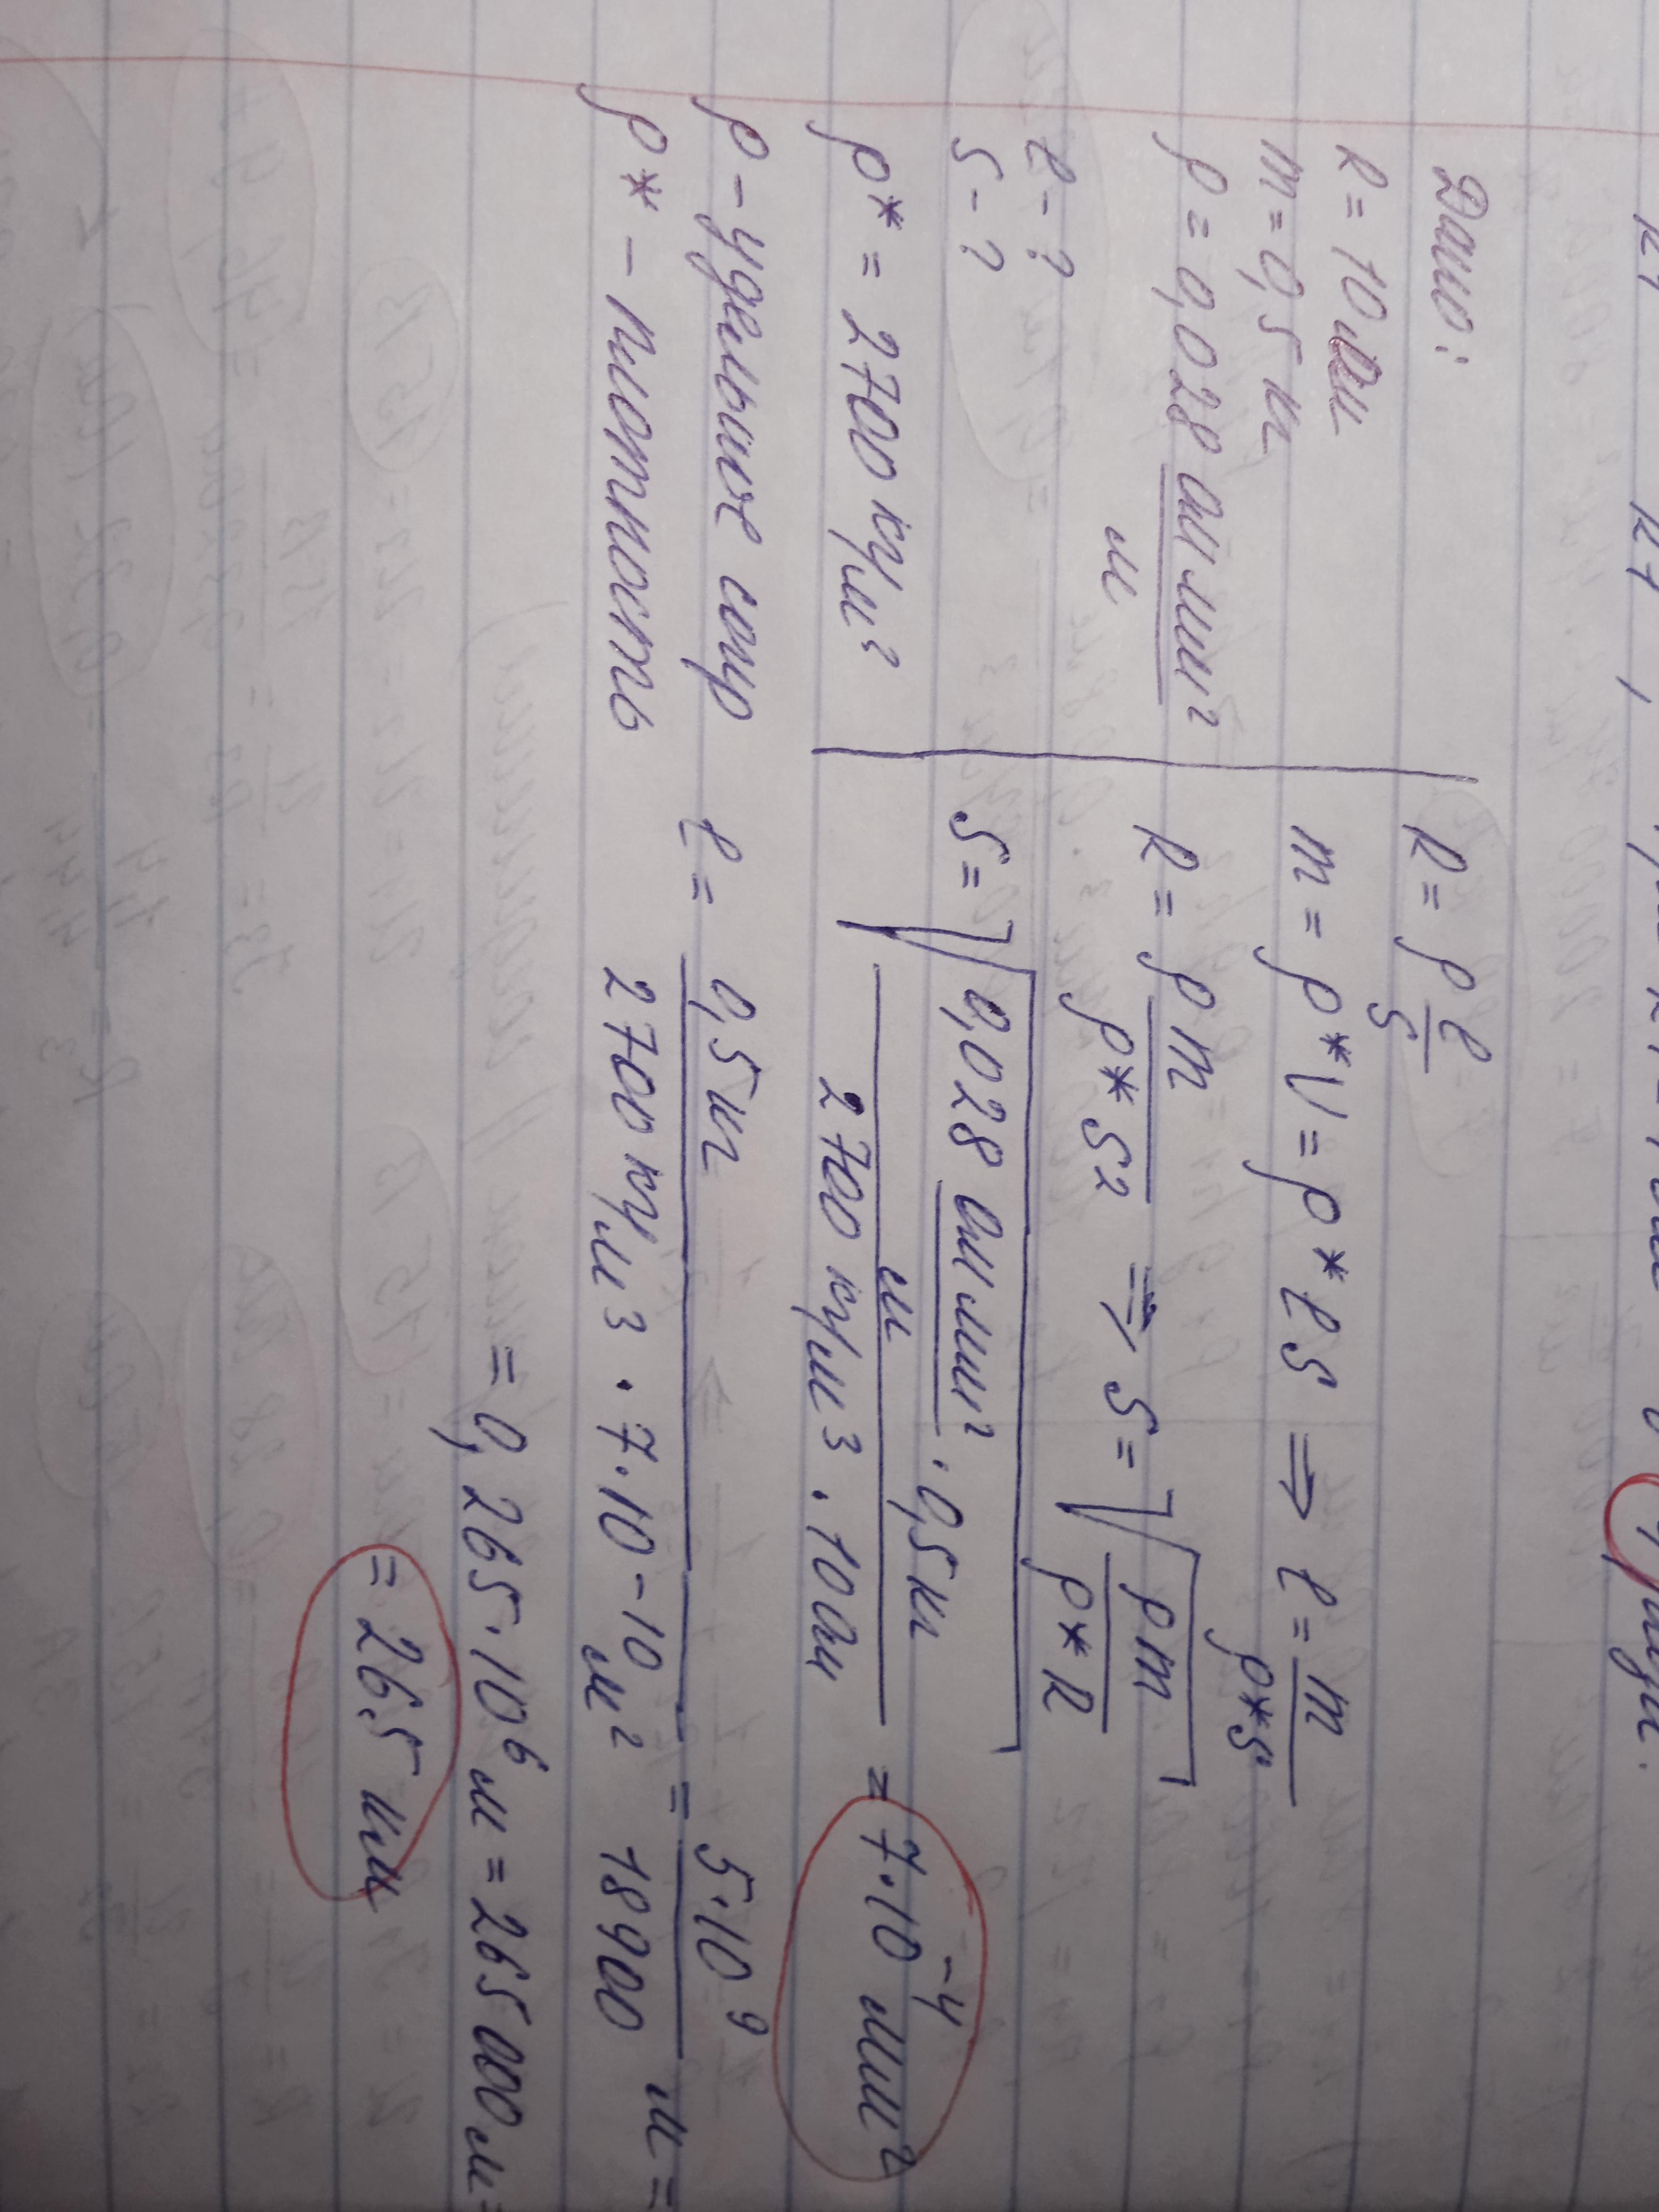 Дано:
R = 10 Ом
m = 0,5 кг
ρ = 0,028 Ом мм²
м
l - ?
S - ?
ρ* = 2700 кг/м³
ρ - удельное сопр
ρ* - плотность
R = ρ l/S
m = ρ*V = ρ* l S ⇒ l = m/ρ*S
R = ρ m/ρ* S² ⇒ S = √ρm/ρ*R
S = √0,028 Ом мм²/м · 0,5 кг
2700 кг/м³ · 10 Ом = 7·10⁻⁴ мм²
l = 0,5 кг
2700 кг/м³ · 7·10⁻¹⁰ м² = 5·10⁹/18900 м =
= 0,265·10⁶ м = 265 000 м =
= 265 км